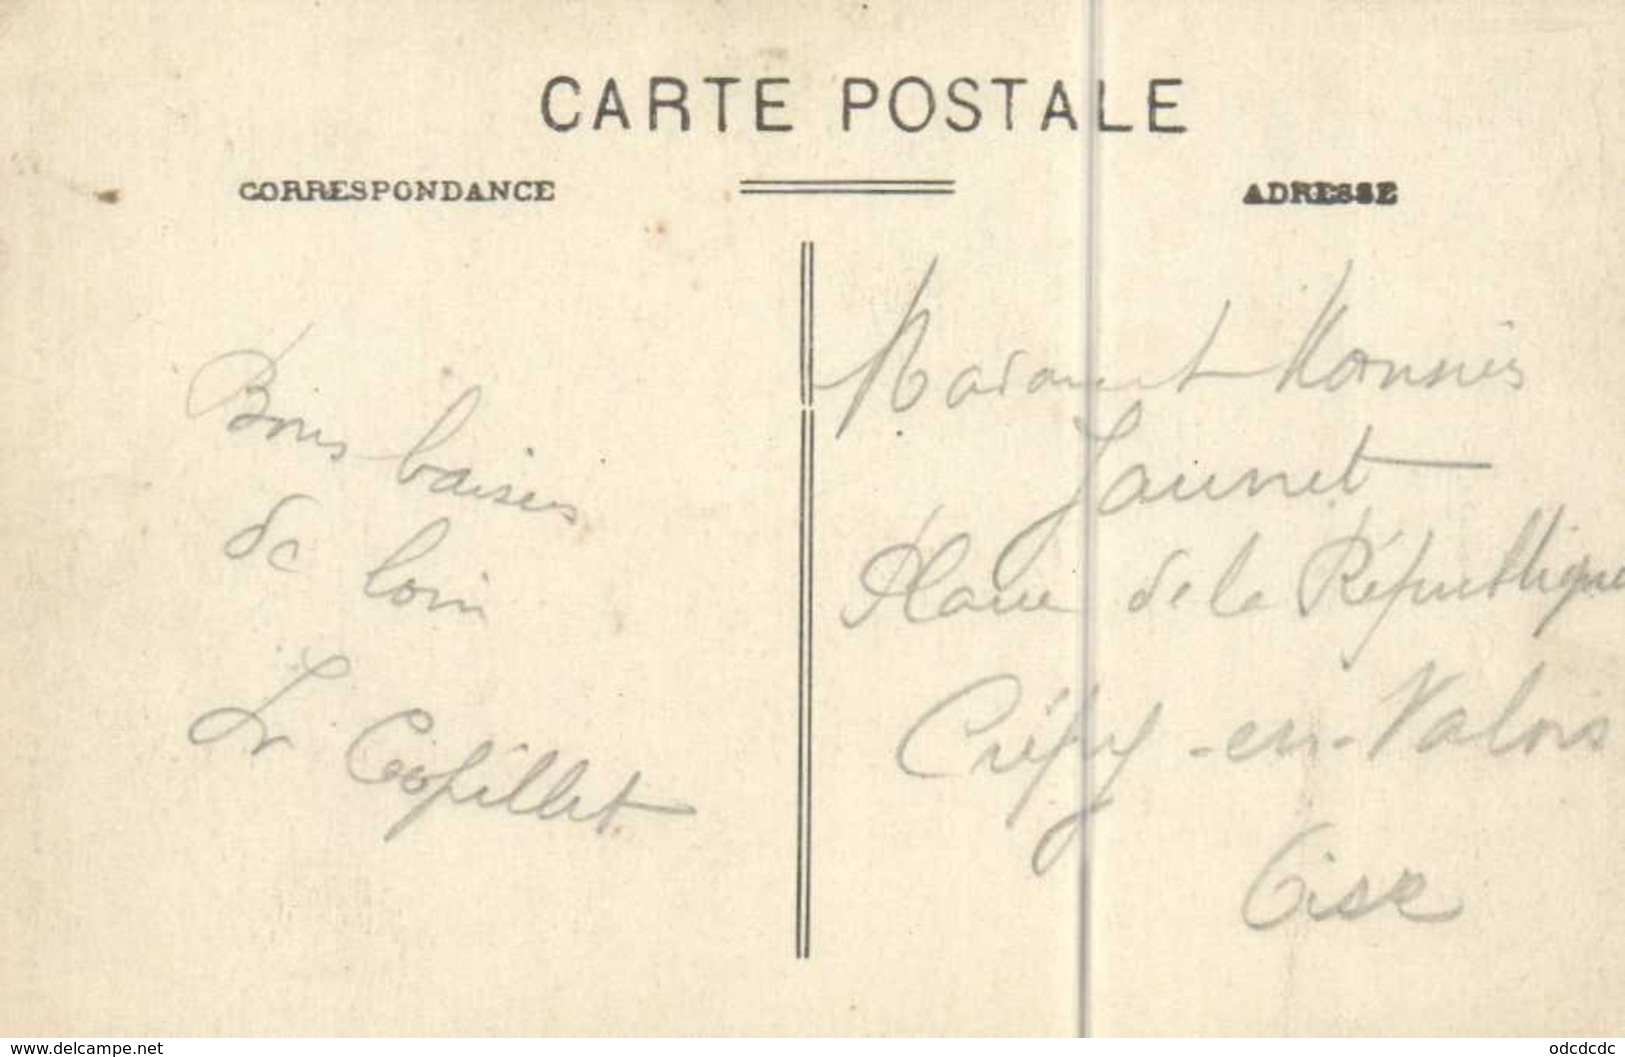 CARTE POSTALE
CORRESPONDANCE
ADRESSE
Bons baisers
de loin
Madame et Monsieur
Jaunet
Place de la République
Crépy-en-Valois
Oise
www.delcampe.net
odcdcdc